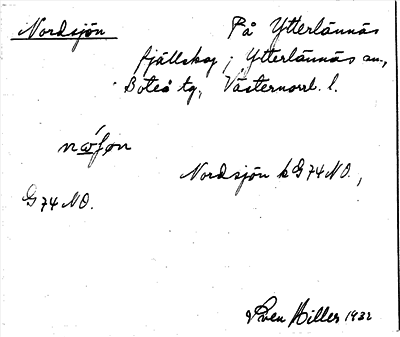 Nordsjön På Ytterlännäs
fjällskog; Ytterlännäs sn.,
Boteå tg, Västernorrl. l.
Nordsjön k G74 NO.,
G74 NO.
Sven Hiller 1932